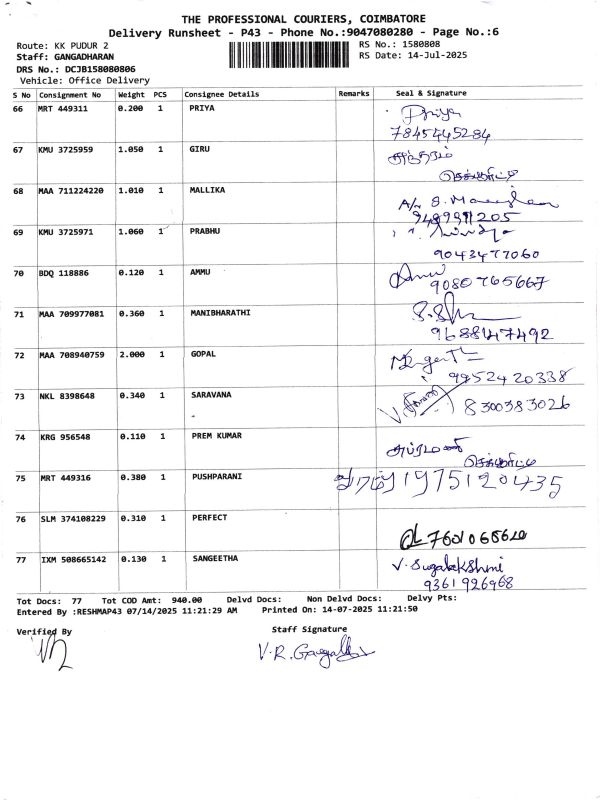 THE PROFESSIONAL COURIERS, COIMBATORE
Delivery Runsheet - P43 - Phone No.:9047080280 - Page No.:6
Route: KK PUDUR 2 RS No.: 1580808
Staff: GANGADHARAN RS Date: 14-Jul-2025
DRS No.: DCJB158080806
Vehicle: Office Delivery
S No Consignment No Weight PCS Consignee Details Remarks Seal & Signature
66 MRT 449311 0.200 1 PRIYA Priya
7845445284
67 KMU 3725959 1.050 1 GIRU
செக்யூரிட்டி
68 MAA 711224220 1.010 1 MALLIKA
69 KMU 3725971 1.060 1 PRABHU
9043477060
70 BDQ 118886 0.120 1 AMMU
9080765667
71 MAA 709977081 0.360 1 MANIBHARATHI
9688147492
72 MAA 708940759 2.000 1 GOPAL
9952420338
73 NKL 8398648 0.340 1 SARAVANA 8300383026
74 KRG 956548 0.110 1 PREM KUMAR
செக்யூரிட்டி
75 MRT 449316 0.380 1 PUSHPARANI 9751120435
76 SLM 374108229 0.310 1 PERFECT
77 IXM 508665142 0.130 1 SANGEETHA V. Sugalakshmi
9361926968
Tot Docs: 77 Tot COD Amt: 940.00 Delvd Docs: Non Delvd Docs: Delvy Pts:
Entered By :RESHMAP43 07/14/2025 11:21:29 AM Printed On: 14-07-2025 11:21:50
Verified By Staff Signature